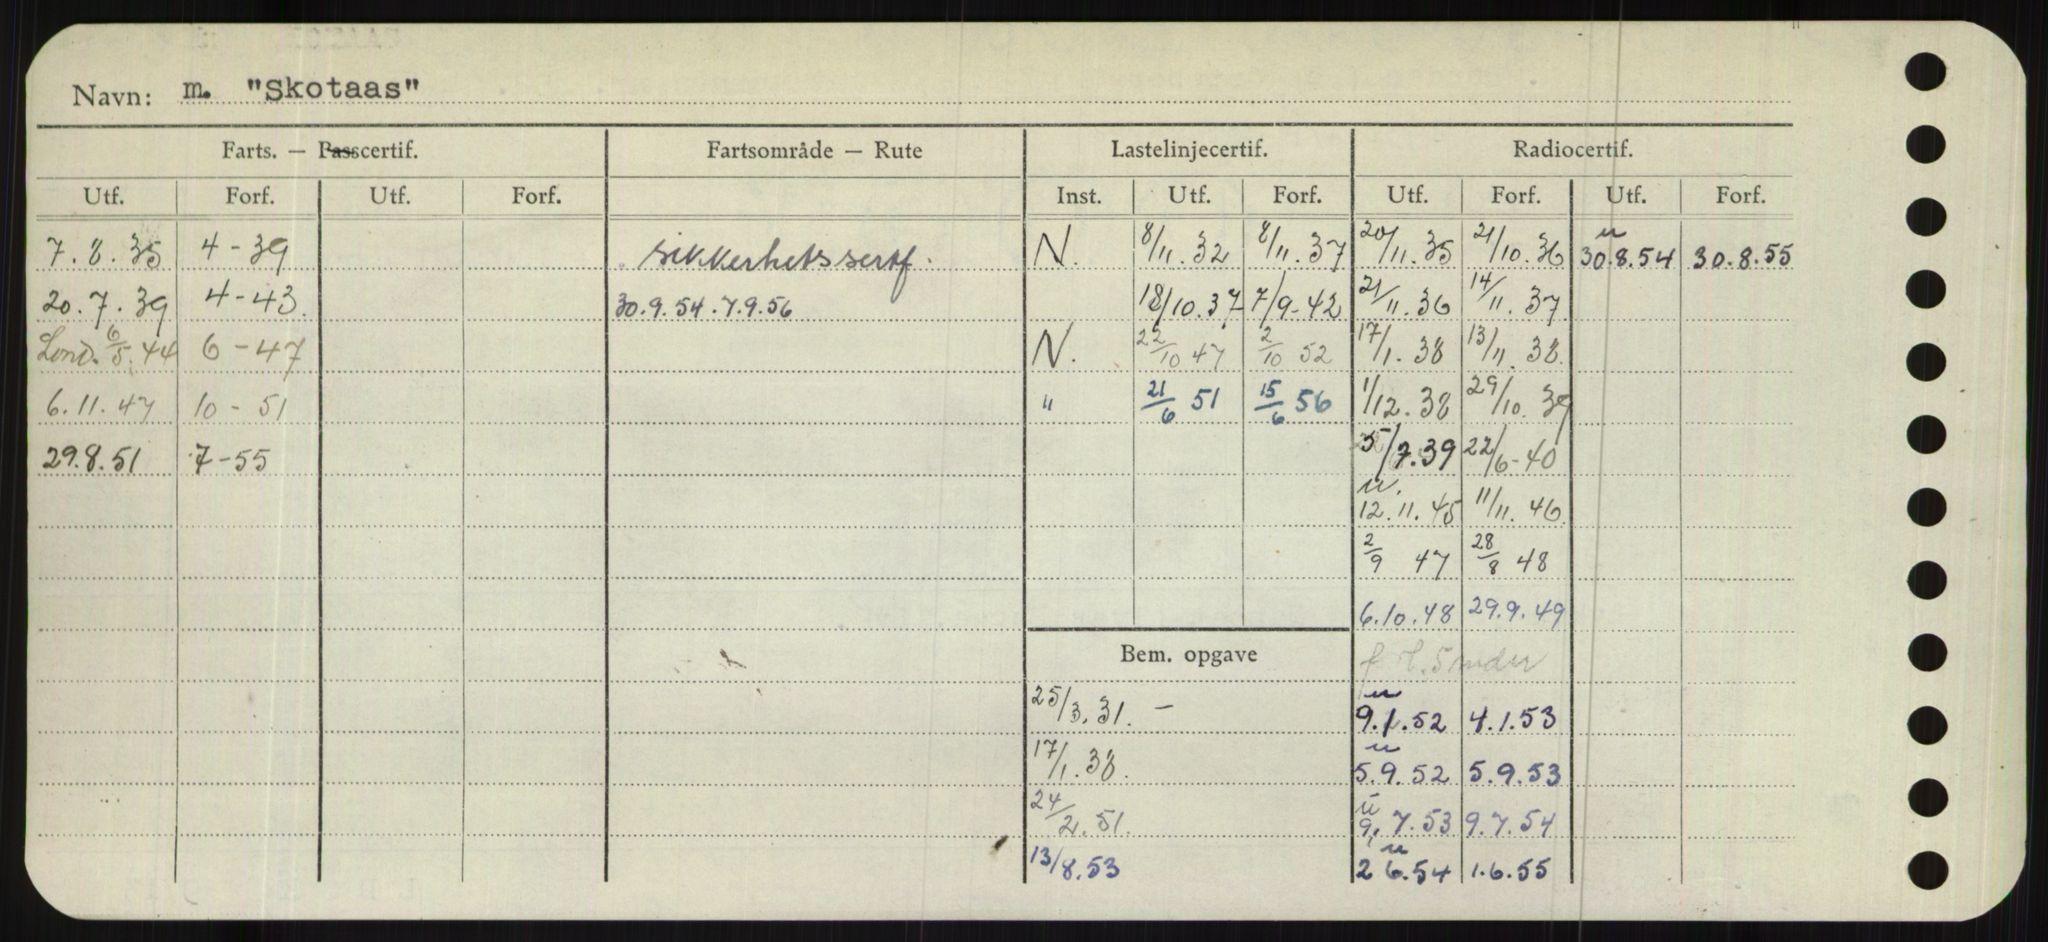 Navn: m. "Skotaas"
Farts. — Passcertif. Fartsområde — Rute Lastelinjecertif. Radiocertif.
Utf. Forf. Utf. Forf. Inst. Utf. Forf. Utf. Forf. Utf. Forf.
7.8.35 4-39 sikkerhetssertf. N. 8/11.32 8/11.37 20/11.35 21/10.36 u 30.8.54 30.8.55
20.7.39 4-43. 30.9.54.7.9.56 18/10.37 7/9-42 21/11.36 14/11.37
Lond. 6/5.44 6-47 N. 22/10 47 2/10 52 17/1.38 13/11.38.
6.11.47 10-51 " 21/6 51 15/6 56 1/12.38 29/10.39
29.8.51 7-55 /7.39 22/6-40
u. 12.11.45 11/11.46
2/9 47 28/8 48
6.10.48 29.9.49
Bem. opgave 5 mdr
25/3.31. — u 9.1.52 4.1.53
17/1.38. u 5.9.52 5.9.53
24/2.51. u 9.7.53 9.7.54
13/8.53 2 u 6.54 1.6.55